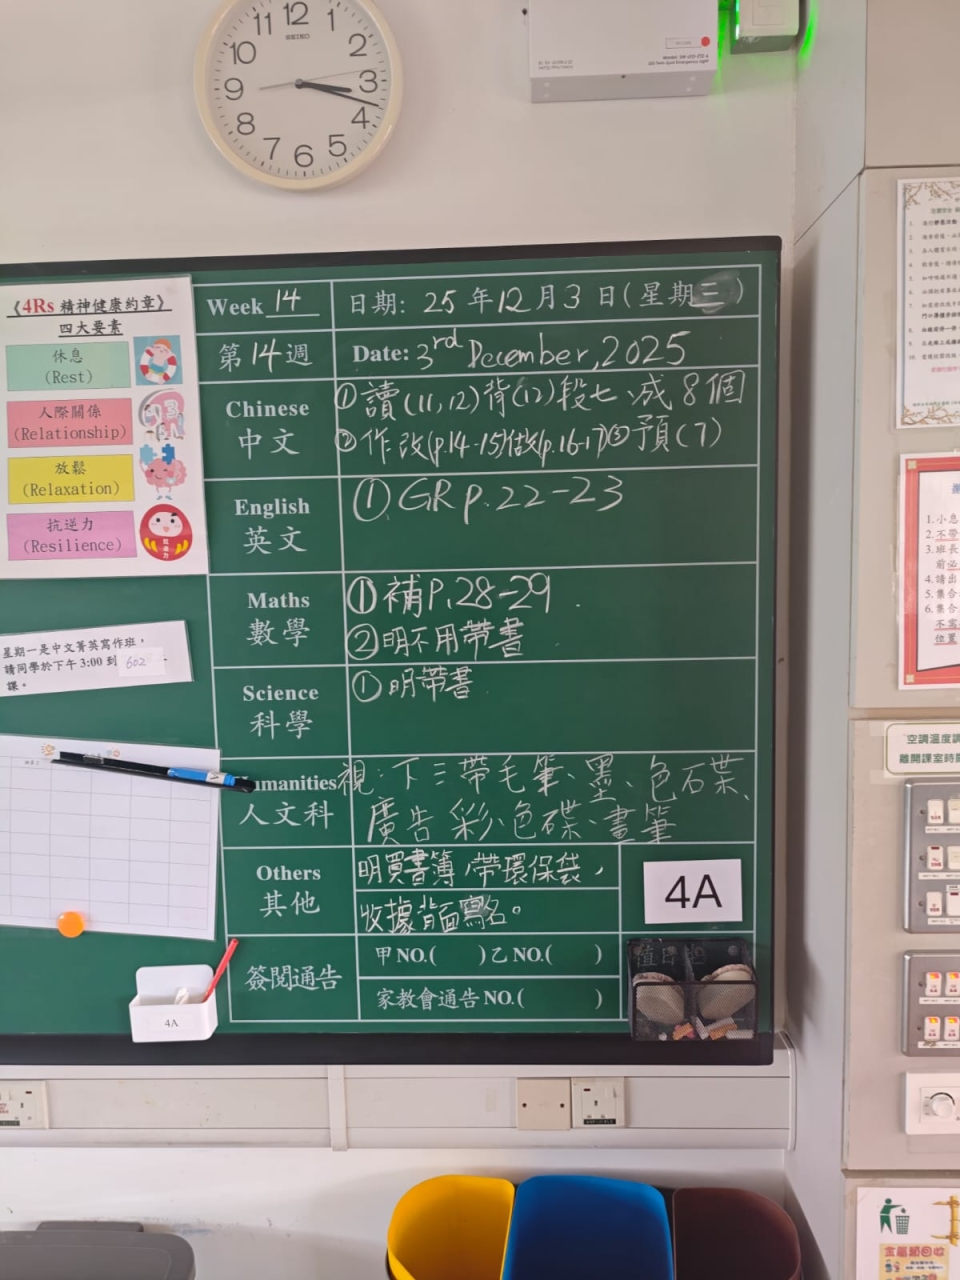 12
11
1
10
2
9
3
8
4
7
5
6
SEIKO
《4Rs 精神健康約章》
四大要素
休息
(Rest)
人際關係
(Relationship)
放鬆
(Relaxation)
抗逆力
(Resilience)
星期一是中文菁英寫作班，
請同學於下午 3:00 到 602
課。
Week 14
日期: 25年12月3日(星期三)
第14週
Date: 3rd December, 2025
Chinese
中文
①讀(11,12)背(12)段七、成8個
②作改(p.14-15)做(p.16-17)③預(7)
English
英文
①GR p.22-23
Maths
數學
①補P.28-29.
②明不用帶書
Science
科學
①明帶書
manities
人文科
視:下三帶毛筆、墨、色石葉、
廣告彩、色碟、畫筆
Others
其他
明買書簿,帶環保袋,
收據背面寫名。
4A
簽閱通告
甲NO.( )乙NO.( )
家教會通告NO.( )
4A
空調溫度
離開課室時
1.小息
2.不帶
3.班長
前必
4.請出
5.集合
6.集合
不需
位置
金屬類回收